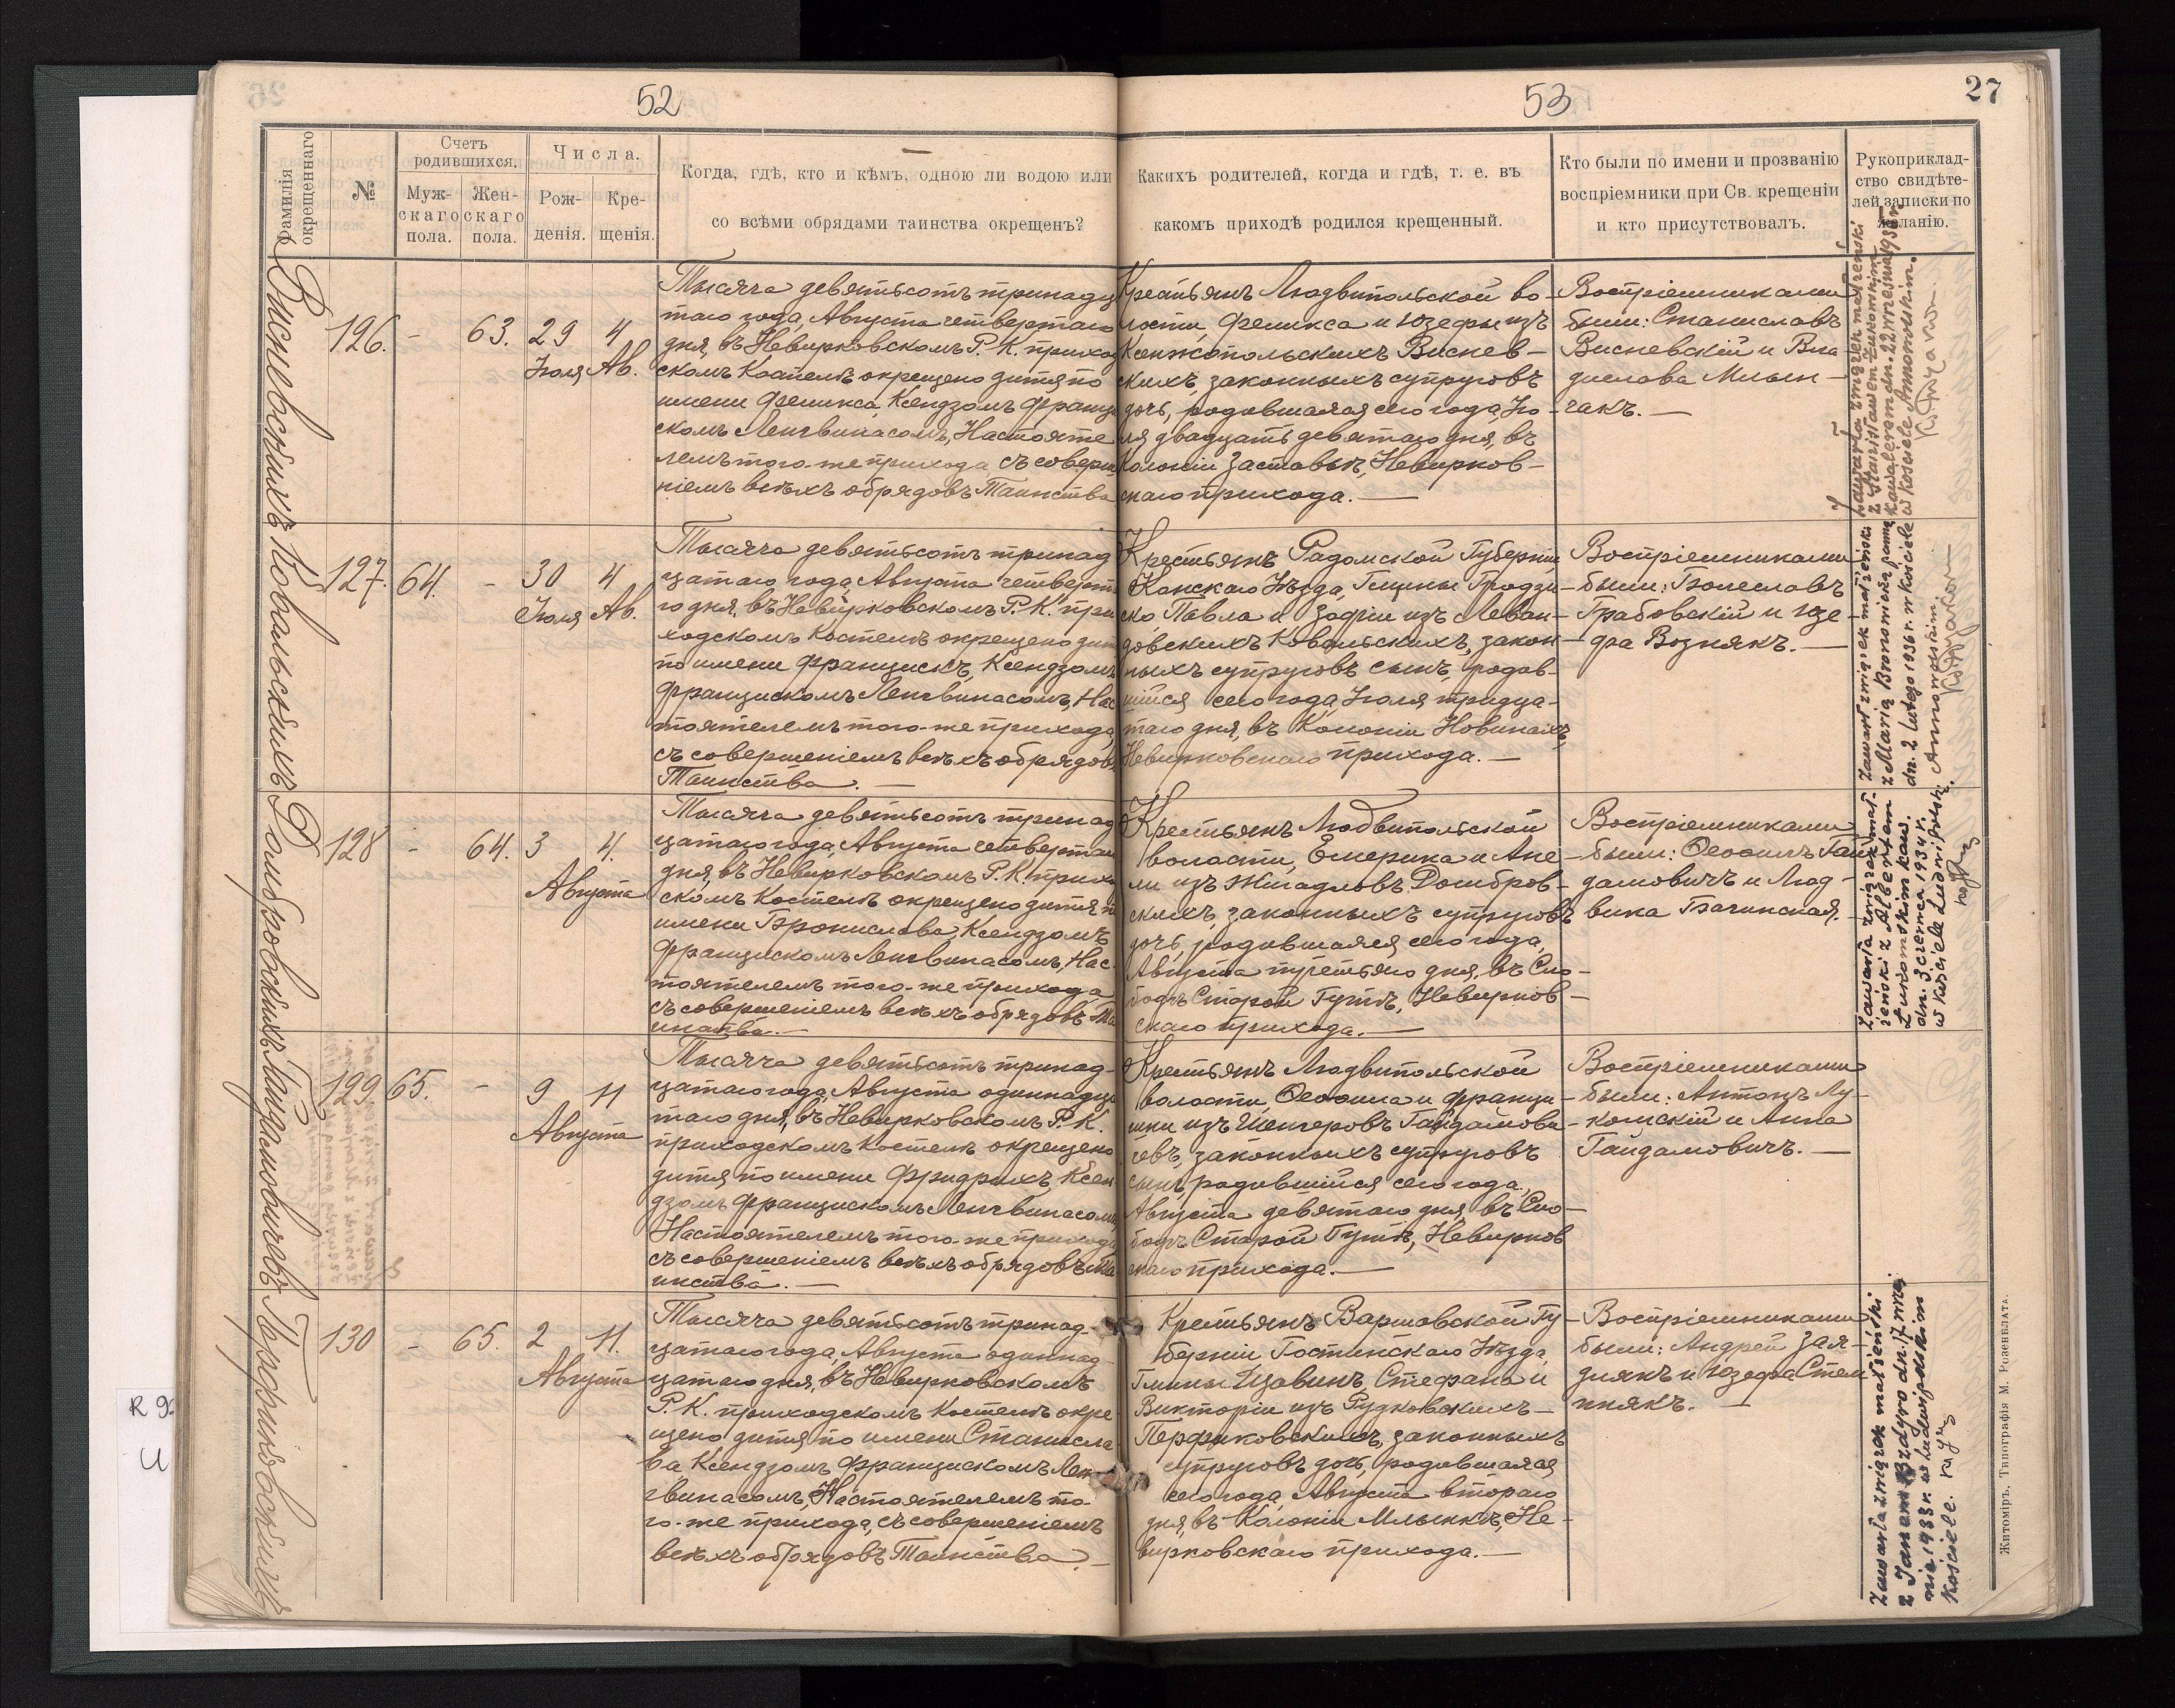 52
53
27
Фамилія окрещеннаго
№
Счетъ родившихся.
Муж-
скаго
пола.
Жен-
скаго
пола.
Числа.
Рож-
денія.
Кре-
щенія.
Когда, гдѣ, кто и кѣмъ, одною ли водою или
со всѣми обрядами таинства окрещенъ?
Какихъ родителей, когда и гдѣ, т. е. въ
какомъ приходѣ родился крещенный.
Кто были по имени и прозванію
воспріемники при Св. крещеніи
и кто присутствовалъ.
Рукоприклад-
ство свидѣте-
лей записки по
желанію.
Висневскихъ
126.
-
63.
29
Іюля
4
Ав.
Тысяча девятьсотъ тринадца
таго года, Августа четвертаго
дня, въ Невирковскомъ Р. К. приход
скомъ Костелѣ окрещено дитя по
имени Феликса, Ксендзомъ Францис
скомъ Ленгвинасомъ, Настояте
лемъ того-же прихода, съ соверше
ніемъ всѣхъ обрядовъ Таинства
Крестьянъ Людвипольской во-
лости, Феликса и Юзефы изъ
Ксенжопольскихъ Виснев-
скихъ, законныхъ супруговъ
дочь, родившаяся сего года, Ію-
ля двадцать девятаго дня, въ
Колоніи Заставьѣ, Невирков-
скаго прихода. —
Воспріемниками
были: Станиславъ
Висневскій и Вла-
дислава Мльын-
чакъ. —
Zawarła związek małżeński
z Stanisławem Żukowskim
kawalerem dn. 22 września 1935 r.
w kościele Annowskim.
Ковальскихъ
127.
64.
-
30
Іюля
4
Ав.
Тысяча девятьсотъ тринад
цатаго года, Августа четверта
го дня, въ Невирковскомъ Р. К. при
ходскомъ Костелѣ окрещено дитя
по имени Францискъ, Ксендзомъ
Францискомъ Ленгвинасомъ, Нас
тоятелемъ того-же прихода,
съ совершеніемъ всѣхъ обрядовъ
Таинства. —
Крестьянъ Радомской Губерніи
Конскаго Уѣзда, Гмины Гродзи-
ско, Павла и Зофіи изъ Леван-
довскихъ Ковальскихъ, закон-
ныхъ супруговъ сынъ, родив-
шійся сего года, Іюля тридца-
таго дня, въ Колоніи Новинахъ,
Невирковскаго прихода. —
Воспріемниками
были: Болеславъ
Грабовскій и Юзе-
фа Вознякъ. —
Zawarł związek małżeński
z Marią Bronowicką panną
dn. 2 lutego 1936 r. w kościele
Annowskim.
Домбровскихъ
128
-
64.
3
4.
Августа
Тысяча девятьсотъ тринад
цатаго года, Августа четвертаго
дня, въ Невирковскомъ Р. К. приход
скомъ Костелѣ окрещено дитя по
имени Бронислава, Ксендзомъ
Францискомъ Ленгвинасомъ, Нас-
тоятелемъ того-же прихода,
съ совершеніемъ всѣхъ обрядовъ Та
инства. —
Крестьянъ Людвипольской
волости, Емерика и Ане-
ли изъ Жигадловъ Домбров-
скихъ, законныхъ супруговъ
дочь, родившаяся сего года,
Августа третьяго дня, въ Сло-
бодѣ Старой Гутѣ, Невирков-
скаго прихода. —
Воспріемниками
были: Ѳеофилъ Гай
дамовичъ и Люд-
вика Бачинская.
Zawarła związek mał-
żeński z Albertem
kaw.
dn. 3 czerwca 1934 r.
w kościele Ludwipolski
Гайдамовичевъ
129.
65.
-
9
11
Августа
Тысяча девятьсотъ тринад-
цатаго года, Августа одиннадца
таго дня, въ Невирковскомъ Р. К.
приходскомъ Костелѣ окрещено
дитя по имени Фридрихъ, Ксен
дзомъ Францискомъ Ленгвинасомъ,
Настоятелемъ того-же прихода
съ совершеніемъ всѣхъ обрядовъ Та
инства. —
Крестьянъ Людвипольской
волости, Ѳеофила и Франци-
шки изъ Шенгеровъ Гайдамови-
чевъ, законныхъ супруговъ
сынъ, родившійся сего года,
Августа девятаго дня, въ Сло-
бодѣ Старой Гутѣ, Невирков
скаго прихода. —
Воспріемниками
были: Антонъ Лу-
комскій и Анна
Гайдамовичъ. —
Перфиковскихъ
130
-
65.
2
11.
Августа
Тысяча девятьсотъ тринад-
цатаго года, Августа одиннад-
цатаго дня, въ Невирковскомъ
Р. К. приходскомъ Костелѣ окре
щено дитя по имени Станисла
ва Ксендзомъ Францискомъ Лен-
гвинасомъ, Настоятелемъ то-
го-же прихода, съ совершеніемъ
всѣхъ обрядовъ Таинства. —
Крестьянъ Варшавской Гу-
берніи, Гостинскаго Уѣзда,
Гмины Щавинъ, Стефана и
Викторіи изъ Рудковскихъ-
Перфиковскихъ, законныхъ
супруговъ дочь, родившаяся
сего года, Августа втораго
дня, въ Колоніи Млынкъ, Не-
вирковскаго прихода. —
Воспріемниками
были: Андрей Зая-
длякъ и Юзефа Стем
пнякъ. —
Zawarła związek małżeński
z Janem Bzdyro dn. 17 maja
1933 r. w Ludwipolskim
kościele.
Житоміръ, Типографія М. Розенблата.